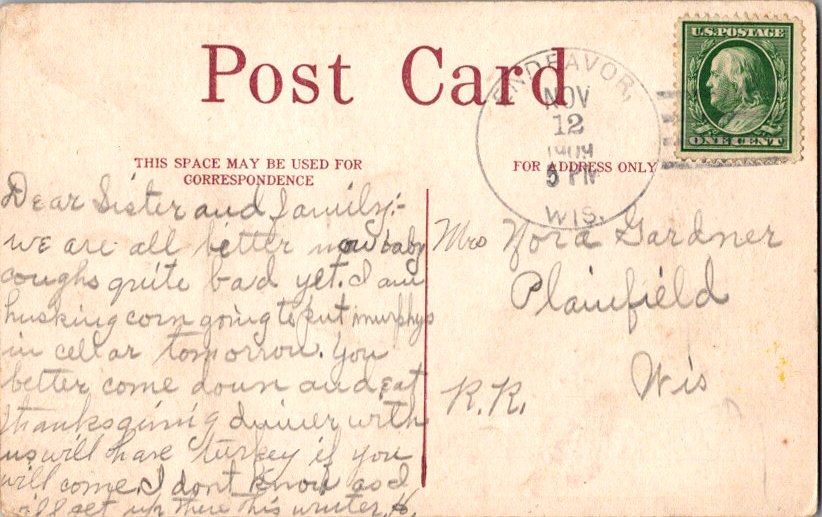 Post Card
U.S. POSTAGE
ONE CENT
ENDEAVOR,
NOV
12
1909
5 PM
WIS.
THIS SPACE MAY BE USED FOR
CORRESPONDENCE
FOR ADDRESS ONLY
Dear Sister and family:-
we are all better now baby
coughs quite bad yet. I am
husking corn going to put murphys
in cellar tomorrow. you
better come down and eat
thanksgiving dinner with
us will have turkey if you
will come. I dont know as I
will get up there this winter. H.
Mrs Nora Gardner
Plainfield
Wis
R.R.